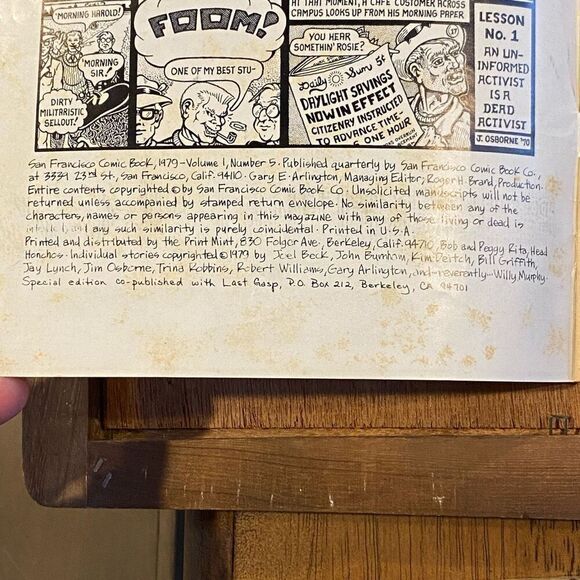 AT THAT MOMENT, A CAFE CUSTOMER ACROSS
CAMPUS LOOKS UP FROM HIS MORNING PAPER
'MORNING HAROLD!
'MORNING
SIR!
DIRTY
MILITARISTIC
SELLOUT!
FOOM!
ONE OF MY BEST STU-
YOU HEAR
SOMETHIN' ROSIE?
Daily Sun
DAYLIGHT SAVINGS
NOW IN EFFECT
CITIZENRY INSTRUCTED
TO ADVANCE TIME-
ONE HOUR
LESSON
No. 1
AN UN-
INFORMED
ACTIVIST
IS A
DEAD
ACTIVIST
J. OSBORNE '70
San Francisco Comic Book, 1979-Volume 1, Number 5. Published quarterly by San Francisco Comic Book Co.,
at 3339 23rd St., San Francisco, Calif. 94110. Gary E. Arlington, Managing Editor, Roger H. Brand, Production.
Entire contents copyrighted © by San Francisco Comic Book Co. Unsolicited manuscripts will not be
returned unless accompanied by stamped return envelope. No similarity between any of the
characters, names or persons appearing in this magazine with any of those living or dead is
intended, and any such similarity is purely coincidental. Printed in U.S.A.
Printed and distributed by the Print Mint, 830 Folger Ave. Berkeley, Calif. 94710, Bob and Peggy Rita, Head
Honchos. Individual stories copyrighted © 1979 by Joel Beck, John Burnham, Kim Deitch, Bill Griffith,
Jay Lynch, Jim Osborne, Trina Robbins, Robert Williams, Gary Arlington, and-reverently-Willy Murphy.
Special edition co-published with Last Gasp, P.O. Box 212, Berkeley, CA 94701